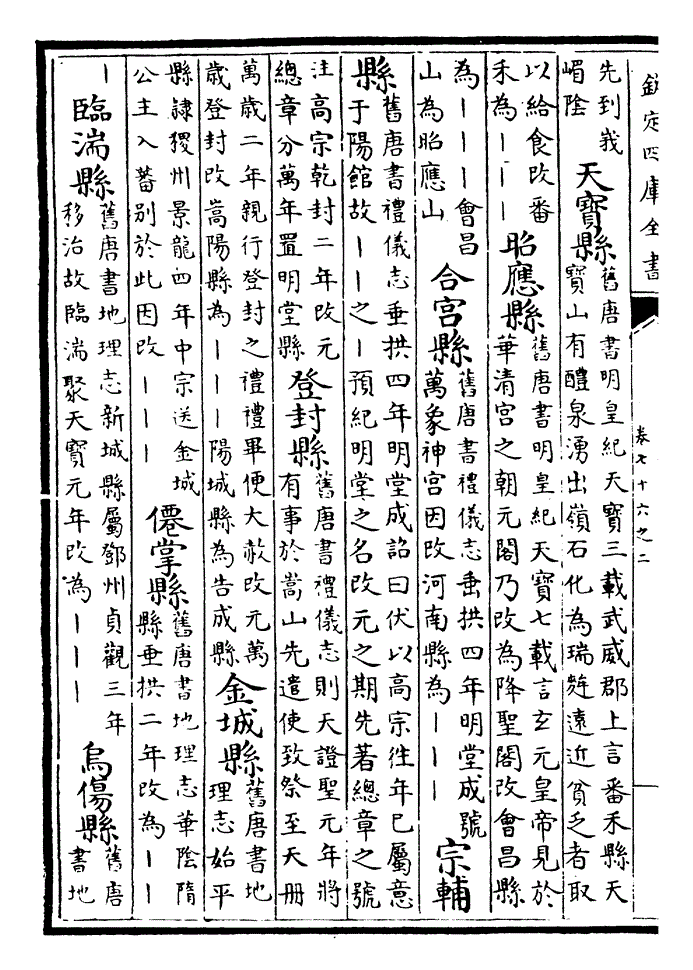 欽定四庫全書
卷七十六之二
先到哉
嵋陰
天寶縣
舊唐書明皇紀天寶三載武威郡上言番禾縣天
寶山有醴泉湧出嶺石化為瑞麰遠近貧乏者取
以給食改番
禾為｜｜｜
昭應縣
舊唐書明皇紀天寶七載言玄元皇帝見於
華清宮之朝元閣乃改為降聖閣改會昌縣
為｜｜｜會昌
山為昭應山
合宮縣
舊唐書禮儀志垂拱四年明堂成號
萬象神宮因改河南縣為｜｜｜
宗輔
縣
舊唐書禮儀志垂拱四年明堂成詔曰伏以高宗往年已屬意
于陽館故｜｜之｜預紀明堂之名改元之期先著總章之號
注高宗乾封二年改元
總章分萬年置明堂縣
登封縣
舊唐書禮儀志則天證聖元年將
有事於嵩山先遣使致祭至天冊
萬歲二年親行登封之禮禮畢便大赦改元萬
歲登封改嵩陽縣為｜｜｜陽城縣為告成縣
金城縣
舊唐書地
理志始平
縣隷獶州景龍四年中宗送金城
公主入蕃別於此因改｜｜｜
僊掌縣
舊唐書地理志華陰隋
縣垂拱二年改為｜｜
｜
臨湍縣
舊唐書地理志新城縣屬鄧州貞觀三年
移治故臨湍聚天寶元年改為｜｜｜
烏傷縣
舊唐
書地